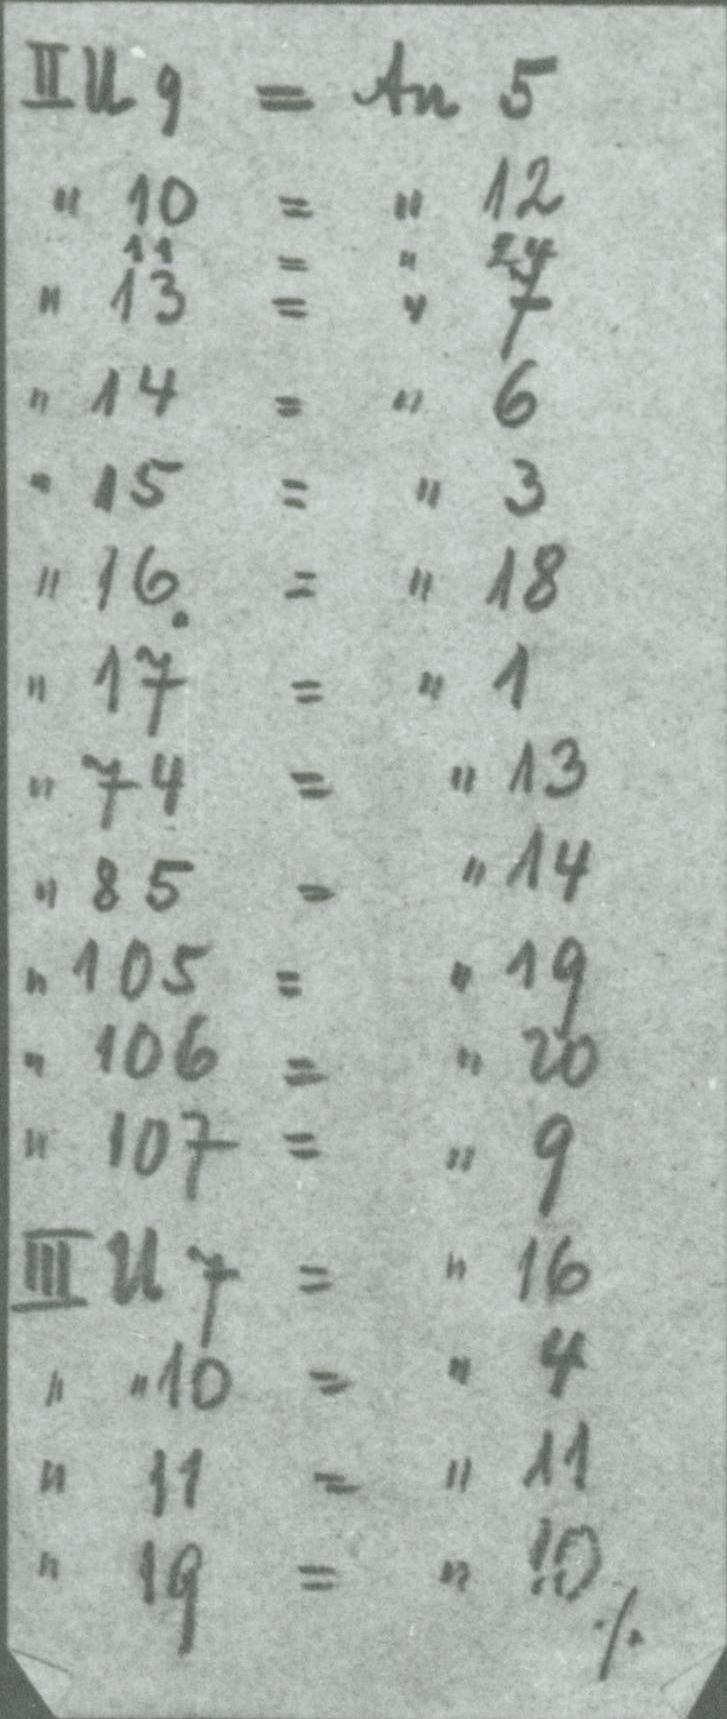 II U 9 = An 5
" 10 = " 12
11 = " 24
" 13 = " 7
" 14 = " 6
" 15 = " 3
" 16. = " 18
" 17 = " 1
" 74 = " 13
" 85 = " 14
" 105 = " 19
" 106 = " 20
" 107 = " 9
III U 7 = " 16
" " 10 = " 4
" 11 = " 11
" 19 = " 10
./.